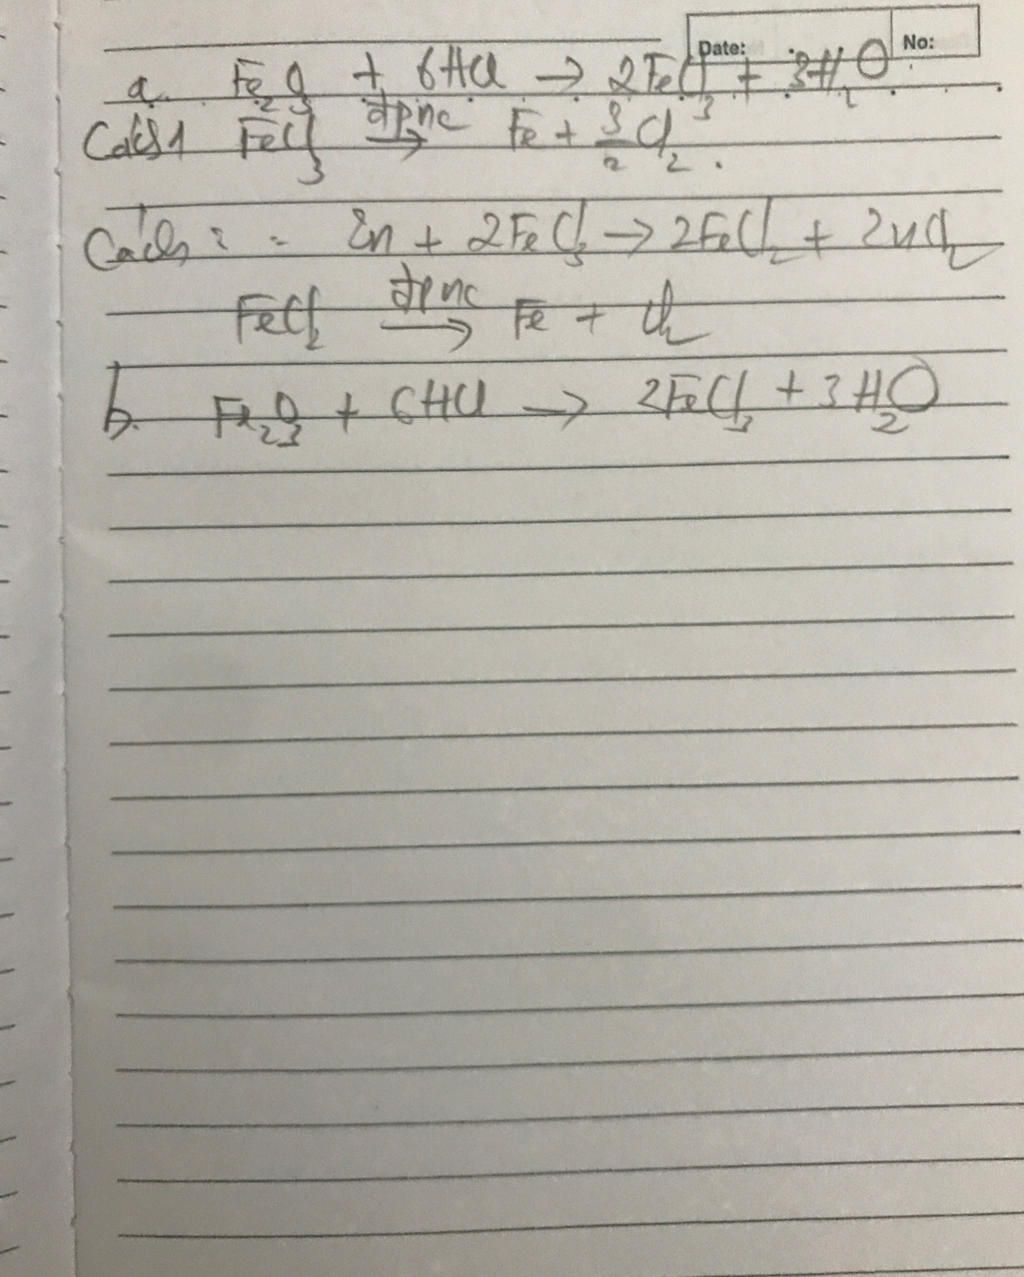 Date: No:
a. Fe2O3 + 6HCl → 2FeCl3 + 3H2O
Cách 1 FeCl3 đpnc → Fe + 3/2 Cl2.
Cách 2 - Zn + 2FeCl3 → 2FeCl2 + ZnCl2
FeCl2 đpnc → Fe + Cl2
b. Fe2O3 + 6HCl → 2FeCl3 + 3H2O